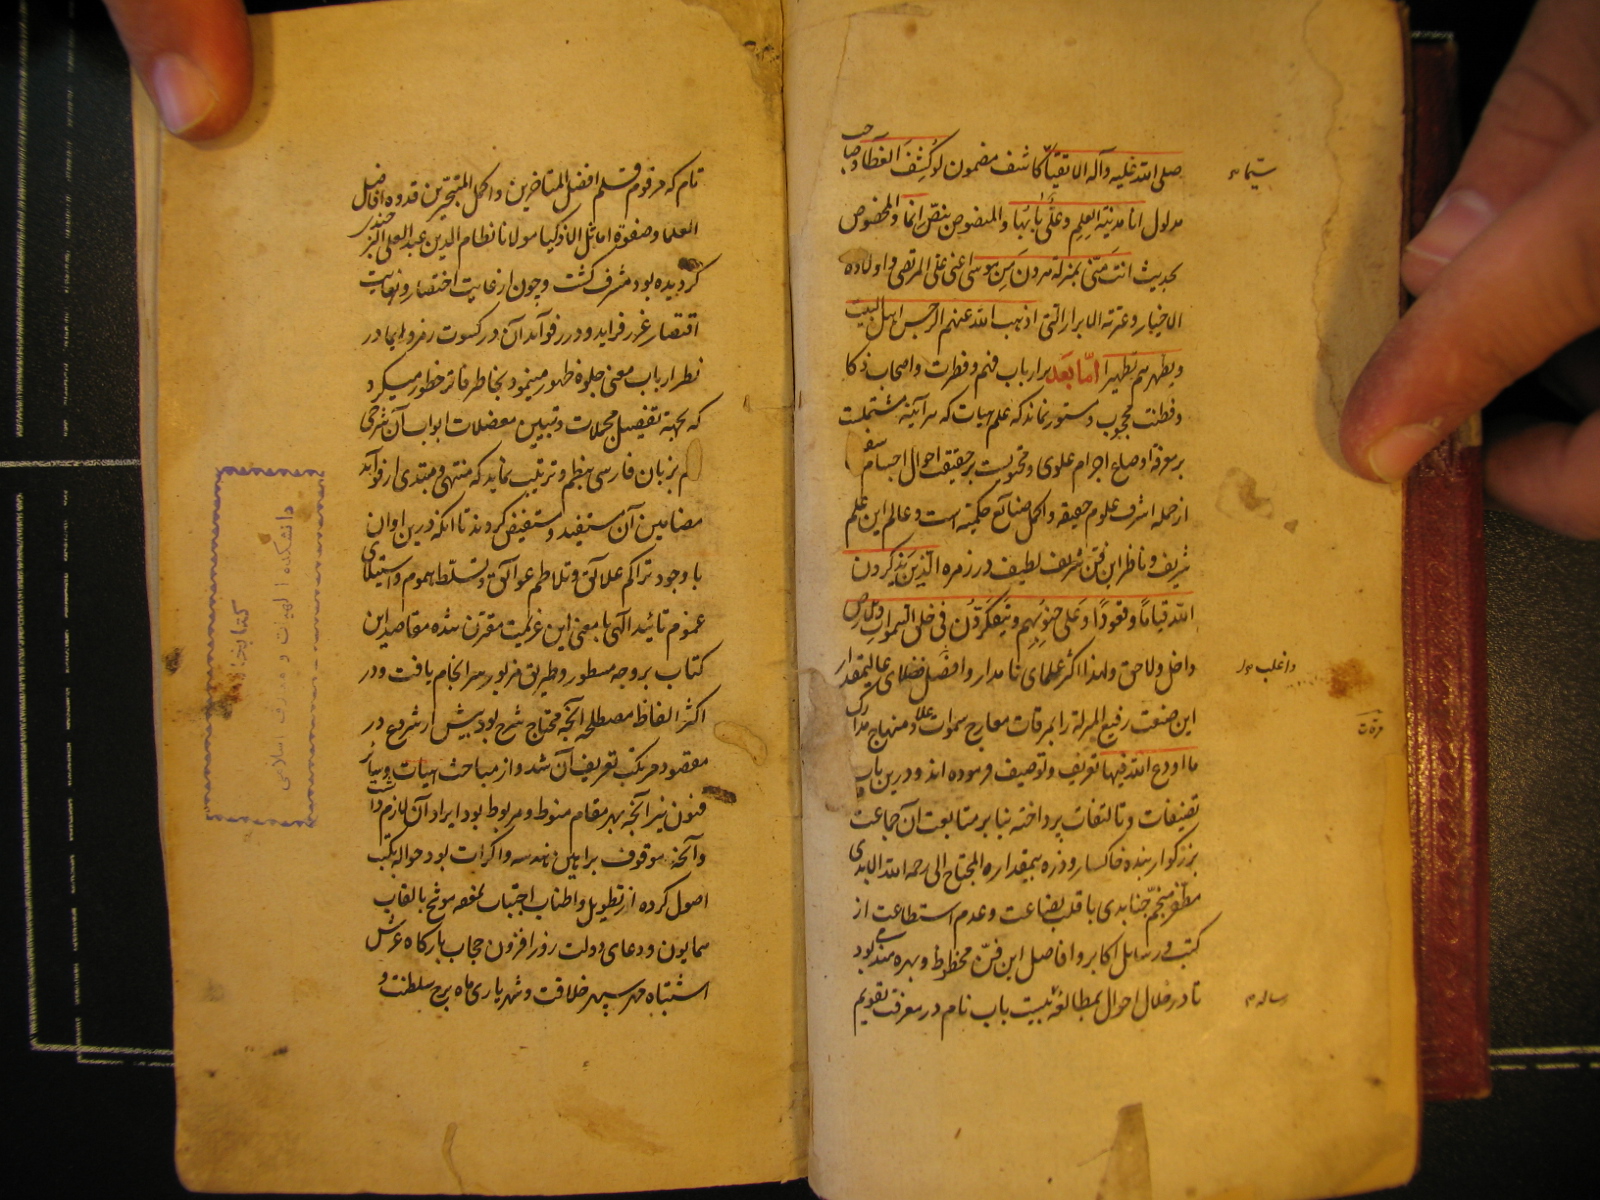 صلی الله علیه وآله الاتقیا کاشف مضمون لو کشف الغطا وصاحب
سیما
مدلول انا مدینة العلم وعلی بابها والمنصوص بنص انما والمخصوص
بحدیث انت منی بمنزلة هرون من موسی اعنی علی المرتضی واولاده
الاخیار وعترته الابرار التی اذهب الله عنهم الرجس اهل البیت
ویطهرهم تطهیرا اما بعد برارباب فهم وفطرت واصحاب ذکا
وفطنت محجوب ومستور نماند که علم هیات که هر آینه مشتملست
بر معرفة اوضاع اجرام علوی ومحتویست بر حقیقة احوال اجسام سفلی
از جمله اشرف علوم حقیقه واکمل صنائع حکمیه است وعالم این علم
شریف وناظر این فن شریف لطیف در زمره الذین یذکرون
الله قیاما وقعودا وعلی جنوبهم ویتفکرون فی خلق السموات والارض
داخل ولاحق ولهذا اکثر علمای نامدار وافضل فضلای عالیمقدار
واغلب
این صنعت رفیع المنزلة را بمرقات معارج سموات علا ومنهاج مدارک
مرقات
ما اودع الله فیها تعریف وتوصیف فرموده اند ودرین باب
تصنیفات وتالیفات پرداخته بنا بر متابعت آن جماعت
بزرکوار بنده خاکسار وذره بیمقدار المحتاج الی رحمة الله الابدی
مظفر منجم جنابدی با قلت بضاعت وعدم استطاعت از
کتب ورسایل اکابر وافاضل این فن محظوظ وبهره مند بود
تا در خلال احوال بمطالعه بیست باب نام در معرفت تقویم
رساله
تام که مرقوم قلم افضل المتاخرین واکمل المتبحرین قدوه افاضل
العلما وصفوة اماثل الاذکیا مولانا نظام الدین عبدالعلی البرجندی
کردیده بود مشرف کشت وچون از غایت اختصار ونهایت
اقتصار غرر فراید ودرر فوآئد آن در کسوت رمز وایما در
نظر ارباب معنی جلوه ظهور مینمود بخاطر فاتر خطور میکرد
که بجهة تفصیل مجملات وتبیین معضلات ابواب آن شرحی
هم بزبان فارسی بنظم وترتیب نماید که منتهی ومبتدی از فوآئد
مضامین آن مستفید ومستفیض کردند تا انکه درین اوان
با وجود تراکم علائق وتلاطم عوائق وتسلط هموم واستیلای
غموم تائید الهی با معنی این عزیمت مقترن شده مقاصد این
کتاب بر وجه مسطور وطریق مزبور سرانجام یافت ودر
اکثر الفاظ مصطلحه آنچه محتاج شرح بود پیش از شروع در
مقصود مرتکب تعریف آن شد واز مباحث هیات وسائر
فنون نیز آنچه بهر مقام منوط ومربوط بود ایراد آن لازم دانست
وآنچه موقوف براهین هندسه واکرات بود حواله بکتب
اصول کرده از تطویل واطناب اجتناب نمود موشح بالقاب
همایون ودعای دولت روز افزون حجاب بارکاه عرش
اشتباه مهر سپهر خلافت وشهریاری ماه برج سلطنت و
کتابخانه
دانشکده الهیات و معارف اسلامی